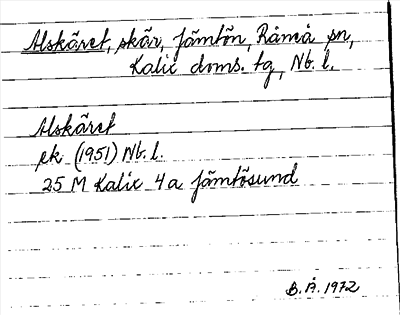 Alskäret, skär, Jämtön, Råneå sn,
Kalix doms. tg, Nb. l.
Alskäret
ek (1951) Nb. l.
25 M Kalix 4a Jämtösund
B. Å. 1972